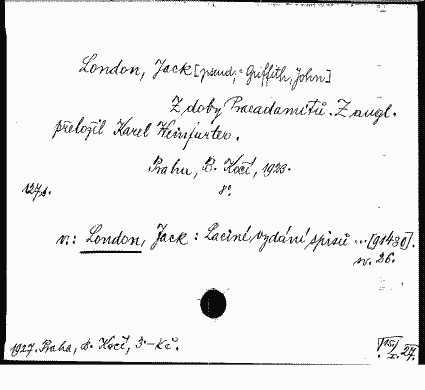 London, Jack [pseud; = Griffith, John]
Z doby Praeadamitů. Z angl.
přeložil Karel Weinfurter.
Praha, B. Kočí, 1923.
127 s. 8°.
v.: London, Jack: Laciné vydání spisů ... [91430].
sv. 26.
1927. Praha, B. Kočí, 3·- Kč. 27.